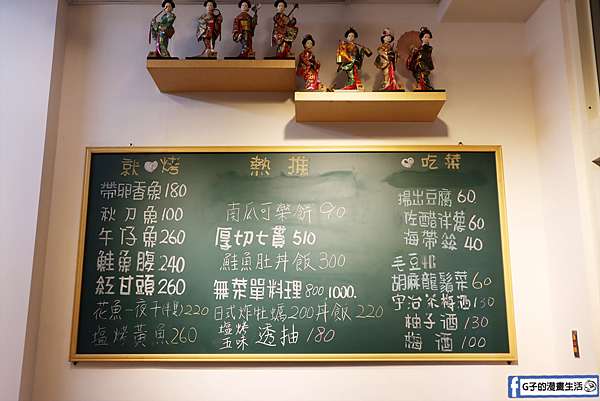 就♥烤
帶卵香魚180
秋刀魚100
午仔魚260
鮭魚腹240
紅甘頭260
花魚一夜干(半隻)220
塩烤黃魚260
熱推
南瓜可樂餅90
厚切七貫510
鮭魚肚丼飯300
無菜單料理800,1000.
日式炸牡蠣200丼飯220
塩烤
玉味
透抽180
♥吃菜
揚出豆腐60
佐醋拌蔘60
海帶絲40
毛豆40
胡麻龍鬚菜60
宇治茶梅酒150
柚子酒130
梅酒100
G子的漫畫生活